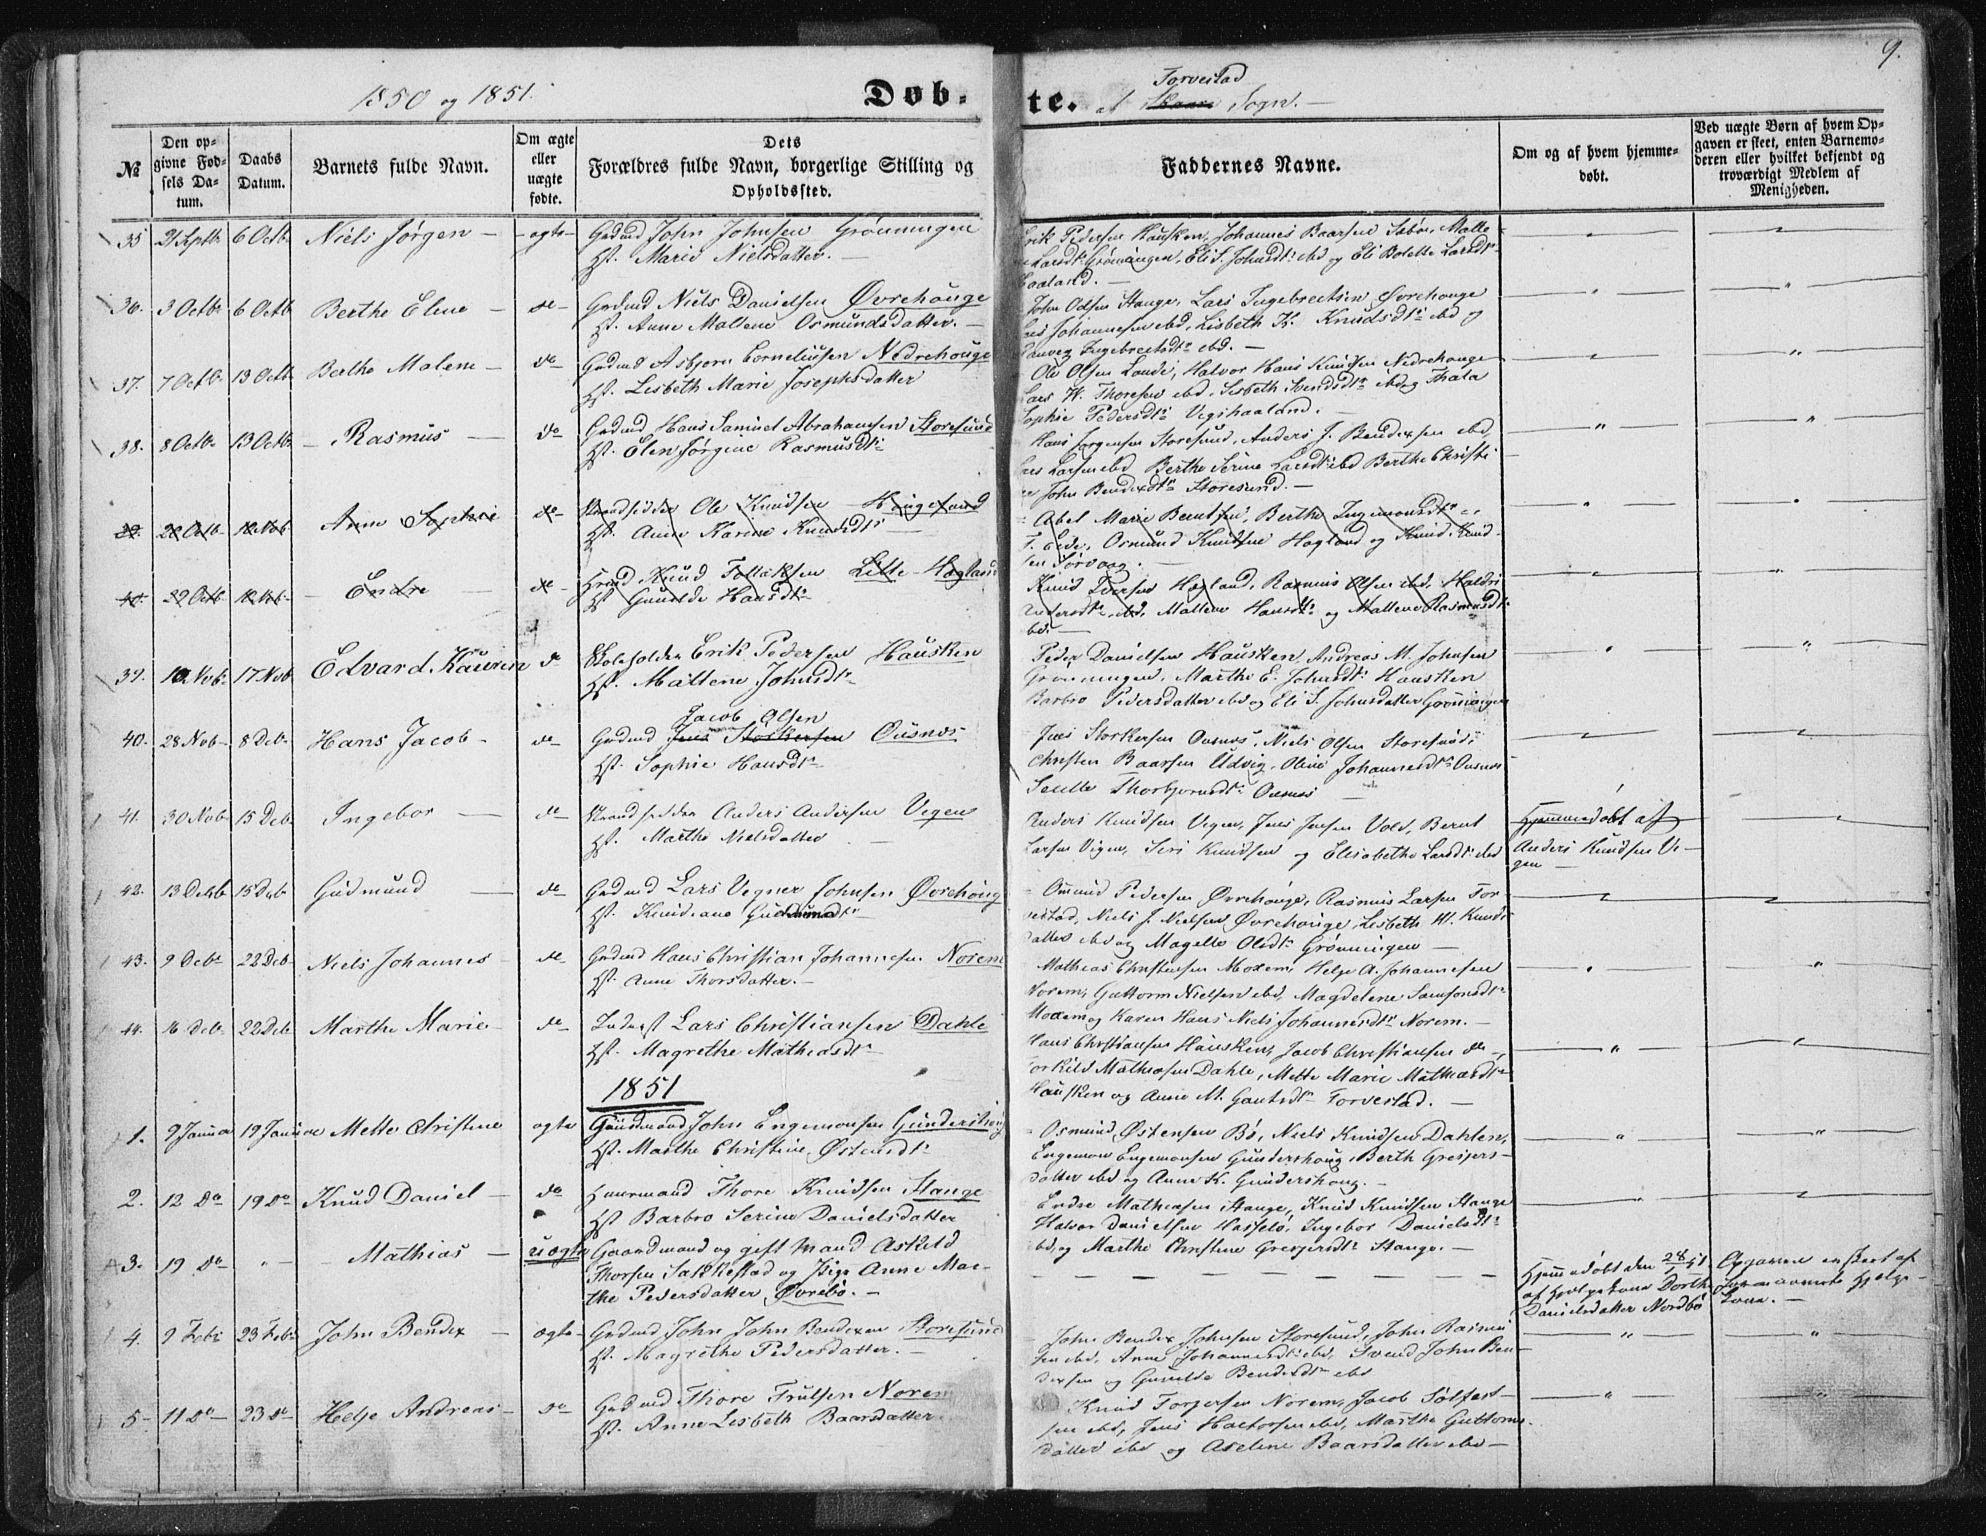 9.
1850 og 1851.
Døb-
te. at Torvestad Skaare Sogn.
№
Den opgivne Fødsels Datum.
Daabs Datum.
Barnets fulde Navn.
Om ægte eller uægte fødte.
Dets Forældres fulde Navn, borgerlige Stilling og Opholdssted.
Faddernes Navne.
Om og af hvem hjemmedøbt.
Ved uægte Børn af hvem Opgaven er skeet, enten Barnemoderen eller hvilket bekjendt og troværdigt Medlem af Menigheden.
35 21 Septb 6 Octb Niels Jørgen ægte Grdmd John Johnsen Grønningen
Hst. Marie Nielsdatter.
Erik Pedersen Hausken, Johannes Baarsen
Larsdtr Grønningen, Eli S. Johnsdtr ibd og Eli Bolette Larsdtr
Haaland.
36. 3 Octb 6 Octb Berthe Elene do Grdmd Niels Danielsen Øvrehouge
Hst. Anne Maltene Osmundsdatter.
John Odsen Stange, Lars Ingebrectsen Øvrehouge
Johannesen ibd, Lisbeth K. Knudsdtr ibd og
Ingebrectsdtr ibd.
37. 7 Octb 13 Octb Berthe Malene do Grdmd Asbjørn Corneliusen Nedrehouge
Hst. Lisbeth Marie Josephsdatter
Ole Olsen Lande, Halvor Hans Knudsen Nedrehouge
Lars W. Thoresen ibd, Lisbeth Svendsdtr ibd og Thala
Sophie Pedersdtr
38. 8 Octb 13 Octb Rasmus do Grdmd Hans Samuel Abrahamsen Storesund
Hst. Elen Jørgine Rasmusdtr
Hans Jørgensen Storesund, Anders J. Bendixsen ibd,
Lars Larsen ibd Berthe Serine Larsdtr ibd Berthe Christi
ne John Bendixdtr Storesund.
39. 20 Octb 10 Nob Anne Sophie do Strandsidder Ole Knudsen Hougesund
Hst. Anne Karine Knudsdtr
Abel Marie Berntsen, Berthe Ingemonsdtr
F. Eide, Osmund Knudsen Hagland og Knud Knud
sen Sørvaag.
40. 29 Octb 10 Nob Endre do Grmd Knud Tollaksen Litle Hagland
Hst Gunilde Hansdtr
Knud Iversen Hagland, Rasmus Olsen ibd,
Pedersdtr ibd, Maltene Hansdtr og Maltene Rasmusdtr
ibd.
39. 10 Nob 17 Nob Edvard Kaurin do Skoleholder Erik Pedersen Hausken
Hst. Maltene Johnsdtr
Peder Danielsen Hausken, Andreas M. Johnsen
Grønningen, Marthe E. Johnsdtr Hausken
Barbro Pedersdatter ibd og Eli S. Johnsdatter Grønningen
40. 28 Nob 8 Deb Hans Jacob do Grdmd Jacob Olsen Jens Storkersen Ousnes
Hst. Sophie Hansdtr
Jens Storkersen Ousnes, Niels Olsen Storesund,
Christen Baarsen Udvig, Oline Johannesdtr Ousnes
Thorbjørnsdtr Ousnes
41. 30 Nob 15 Deb Ingebor do Strandsidder Anders Andersen Vegen
Hst. Marthe Nielsdatter
Anders Knudsen Vegen, Jens Jensen Vold, Bernt
Larsen Vigen, Seri Knudsen og Elisabethe Larsdtr ibd
Hjemmedøbt af
Anders Knudsen Ve-
gen
42. 13 Decb 15 Deb Gudmund do Grdmd Lars Vegner Johnsen Øvrehoug
Hst. Knudeane Gudmundsdtr
Omund Pedersen Øvrehouge, Rasmus Larsen Tor
vestad, Niels J. Nielsen Øvrehouge, Lisbeth W. Knuds
datter ibd og Magelle Olsdtr Grønningen
43. 9 Deb 22 Deb Niels Johannes do Grdmd Hans Christian Johannesen Norem
Hst. Anne Thorsdatter.
Mathias Christensen Moxem, Helge A. Johannesen
Norem, Guttorm Nielsen ibd, Magdelene Samsonsdtr
Moxem og Karen Hans Niels Johannesdtr Norem.
44. 16 Deb 22 Deb Marthe Marie do Inderst Lars Christiansen Dahle
Hst. Magrethe Mathiasdtr
Hans Christiansen Hausken, Jacob Christiansen do,
Torkild Mathiasen Dahle, Mette Marie Mathiasdtr
Hausken og Anne M. Gautsdtr Torvestad.
1851
1. 9 Januar 19 Januar Mette Christine ægte Gaardmand John Engemonsen Gundershoug
Hst. Marthe Christine Østensdtr
Osmund Østensen Bø, Niels Knudsen Dahlen,
Engemon Engemonsen Gundershoug, Berth Gregers-
datter ibd og Anne K. Gundershoug.
2. 12 Do 19 Do Knud Daniel do Huusmand Thore Knudsen Stange
Hst Barbro Serine Danielsdatter
Endre Mathiasen Stange, Knud Knudsen Stange
Halvor Danielsen Hasselø, Ingebor Danielsdtr
ibd og Marthe Christine Gregersdtr Stange.
3. 19 Do " Mathias uægte Gaardmand og gift Mand Askild
Thorsen Sakkestad og Pige Anne Mar-
the Pedersdatter Øvrebø.
Hjemmedøbt den 28/1 51
af Hjelpekone Dorthe
Danielsdatter Nordbø
Opgaven er skeet af
Hjelpe-
kone.
4. 9 Feb 23 Feb John Bendix ægte Grdmd John John Bendixen Storesund
Hst. Magrethe Pedersdatter.
John Bendix Johnsen Storesund, John Rasmu
sen ibd, Anne Johannesdtr ibd, Svend John Ben-
dixsen og Gunilde Bendixdtr ibd
5 11 Do 23 Do Helge Andreas do Grdmd Thore Trulsen Norem
Hst. Anne Lisbeth Baarsdatter
Knud Torgersen Norem, Jacob Solfest-
sen ibd, Jens Halvorsen ibd, Marthe Guttorms
datter ibd og Aselene Baarsdatter ibd